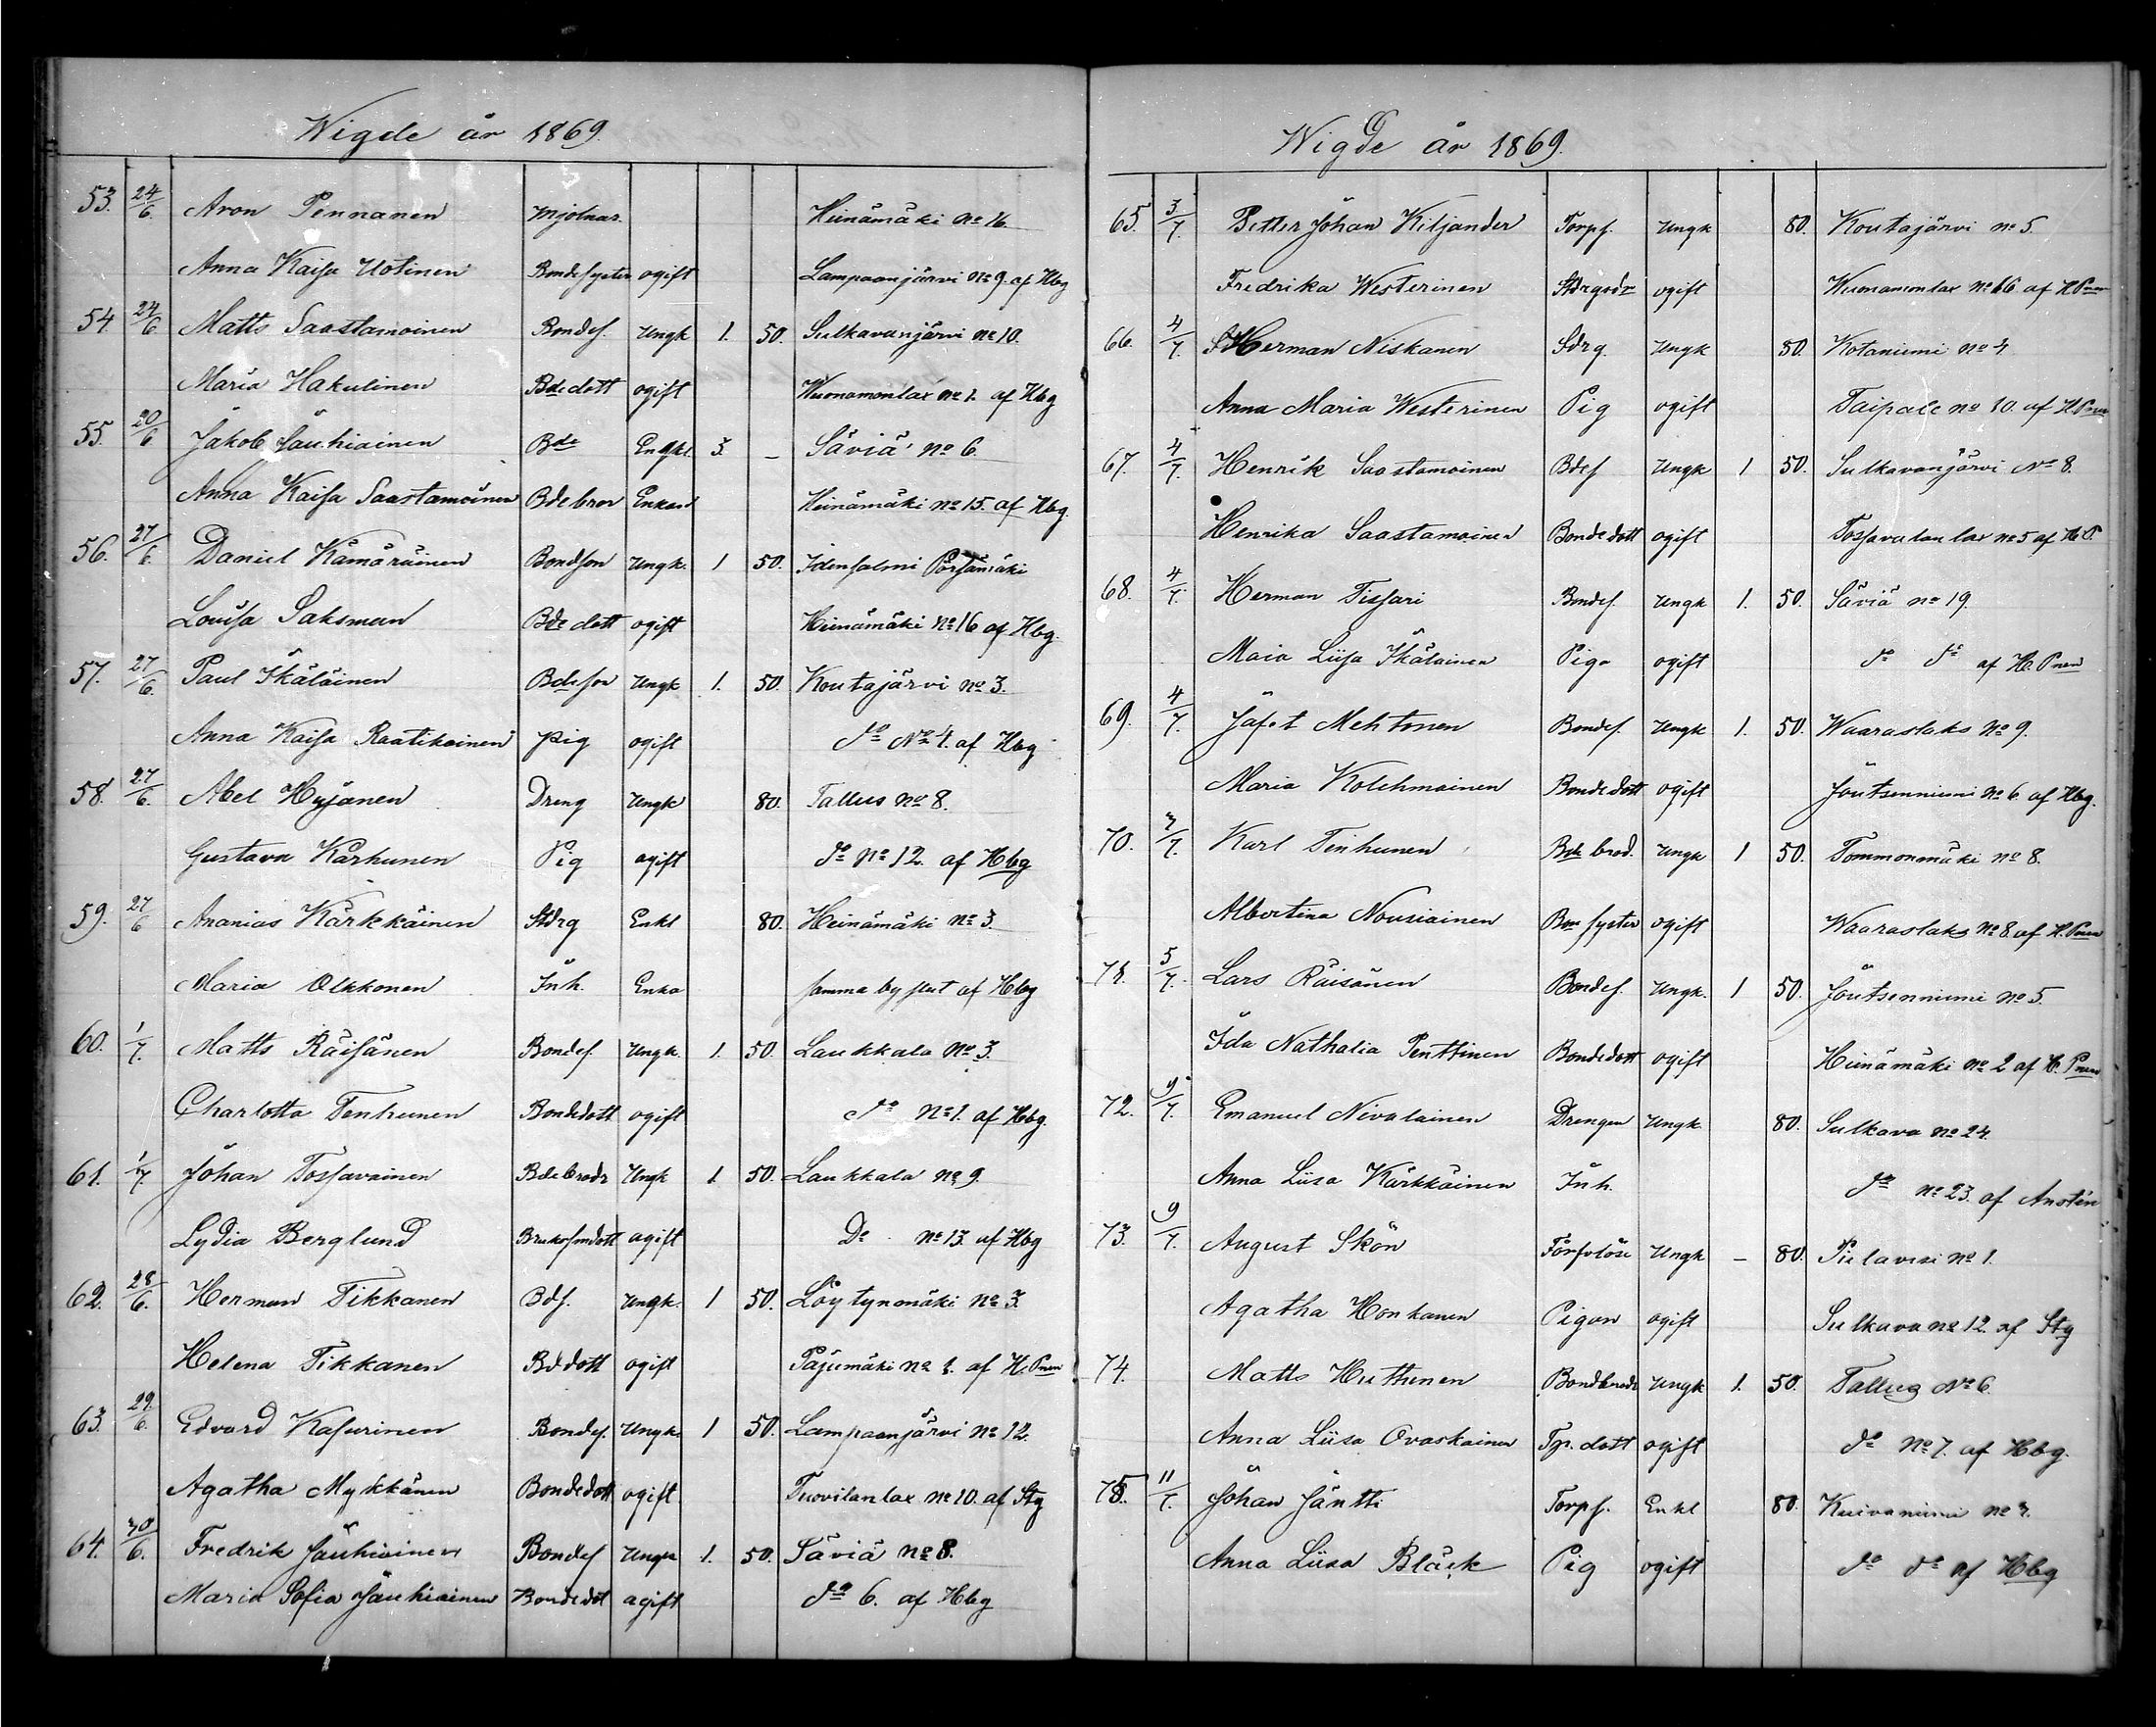 Wigde år 1869.
53. 24/6. Aron Pennanen Mjolnar. Heinämäki No 16.
Anna Kaisa Uotinen Bondesyster ogift Lampaanjärvi No 9. af Hbg
54. 24/6. Matts Saastamoinen Bondes. Ungk 1. 50. Sulkavanjärvi No 10.
Maria Hakulinen Bde dott ogift Wuonamonlax No 1. af Hbg
55. 20/6 Jakob Jauhiainen Bde Engkl. 3. – Säviä No 6.
Anna Kaisa Saastamoinen Bde bror Enkan Heinämäki No 15. af Hbg.
56. 27/6. Daniel Kämäräinen Bondson Ungk. 1 50. Idensalmi Pörsänmäki
Lovisa Saksman Bde dott ogift Heinämäki No 16 af Hbg.
57. 27/6. Paul Ikäläinen Bdeson Ungk 1. 50. Koutajärvi No 3.
Anna Kaisa Raatikainen Pig ogift do No 4. af Hbg
58. 27/6. Abel Hujanen Dreng Ungk 80. Tallus No 8.
Gustava Karhunen Pig ogift do No 12. af Hbg
59. 27/6 Ananias Kärkkäinen Stdrg Enkl 80. Heinämäki No 3.
Maria Olkkonen Inh. Enka samma by flut af Hbg
60. 1/7. Matts Räisänen Bondes. Ungk. 1. 50. Laukkala No 3.
Charlotta Tenhunen Bondedott ogift do No 1. af Hbg.
61. 1/7 Johan Tossavainen Bdebrodr Ungk 1. 50. Laukkala No 9.
Lydia Berglund ogift Do No 13. af Hbg
62. 28/6. Herman Tikkanen Bdf. Ungk. 1 50. Löytynmäki No 3.
Helena Tikkanen Bddott ogift Pajumäki No 1. af H. Pnen
63. 29/6. Edvard Kasurinen Bondes. Ungk. 1 50. Lampaanjärvi No 12.
Agatha Mykkänen Bondedott ogift Tuovilanlax No 10. af Stg
64. 30/6. Fredrik Jauhiainen Bondes Ungk 1. 50. Säviä No 8.
Maria Sofia Jauhiainen Bondedot ogift do 6. af Hbg
Wigde år 1869.
65. 3/7. Petter Johan Kiljander Torps. Ungk 80. Koutajärvi No 5.
Fredrika Westerinen Stdrgodr ogift Wuonamonlax No 66 af H Pnen
66. 4/7. Herman Niskanen Sdrg. Ungk 50. Kotaniemi No 4
Anna Maria Westerinen Pig ogift Taipale No 10. af H Pnen
67. 4/7. Henrik Saastamoinen Bdes Ungk 1 50. Sulkavanjärvi No 8.
Henrika Saastamoinen Bondedott ogift Tossavalanlax No 5 af H P
68. 4/7. Herman Tissari Bondes. Ungk 1. 50. Säviä No 19.
Maia Liisa Ikäläinen Piga ogift do do af H. Pnen
69. 4/7. Jafet Mehtonen Bondes. Ungk 1. 50. Waaraslaks No 9.
Maria Kolehmainen Bondedott ogift Joutsenniemi No 6. af Hbg.
70. 7/7. Karl Tenhunen Bde brod. Ungk 1 50. Tommonmäki No 8.
Albertina Nousiainen syster ogift Waaraslaks No 8. af H. Pnen
71. 5/7. Lars Räisänen Bondes. Ungk. 1 50. Joutsenniemi No 5.
Ida Nathalia Penttinen Bondedott ogift Heinämäki No 2 af H. Pnen
72. 9/7. Emanuel Nivalainen Drengen Ungk. 80. Sulkava No 24.
Anna Liisa Kärkkäinen Inh. do No 23. af Anstén
73. 9/7. August Skön Ungk – 80. Pielavesi No 1.
Agatha Honkanen Pigan ogift Sulkava No 12. af Stg
74. Matts Huttunen Bondbrodr Ungk 1. 50. Tallus No 6.
Anna Liisa Ovaskainen Tp. dott ogift do No 7. af Hbg.
75. 11/7. Johan Jäntti Torps. Enkl 80. Kuivaniemi No
Anna Liisa Bläck Pig ogift do do af Hbg